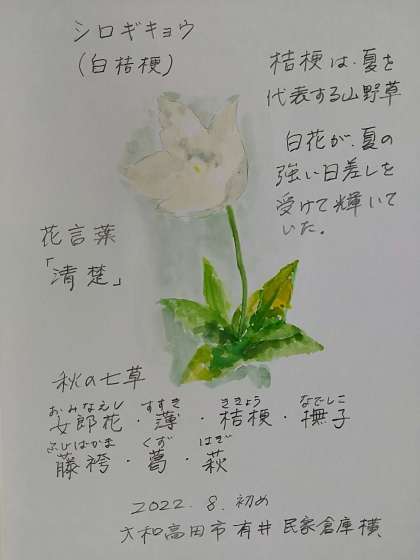 シロギキョウ
(白桔梗)
桔梗は、夏を
代表する山野草
白花が、夏の
強い日差しを
受けて輝いて
いた。
花言葉
「清楚」
秋の七草
おみなえし すすき ききょう なでしこ
女郎花・薄・桔梗・撫子
ふじばかま くず はぎ
藤袴・葛・萩
2022.8.初め
大和高田市有井民家倉庫横